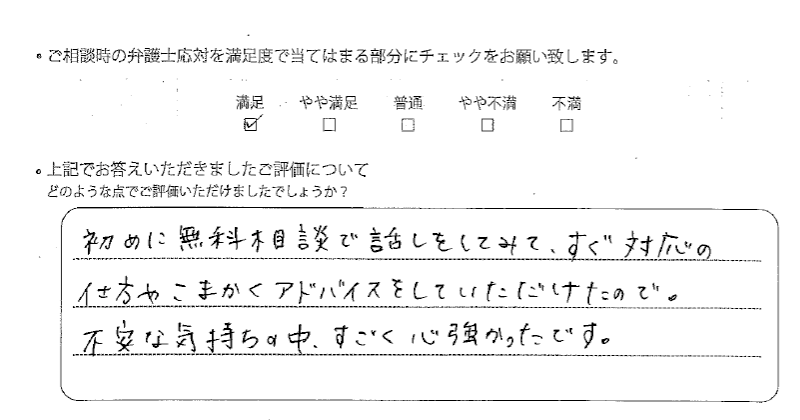 ・ご相談時の弁護士応対を満足度で当てはまる部分にチェックをお願い致します。
満足 やや満足 普通 やや不満 不満
☑ ☐ ☐ ☐ ☐
・上記でお答えいただきましたご評価について
どのような点でご評価いただけましたでしょうか？
初めに無料相談で話しをしてみて、すぐ対応の
仕方やこまかくアドバイスをしていただけたので。
不安な気持ちの中、すごく心強かったです。